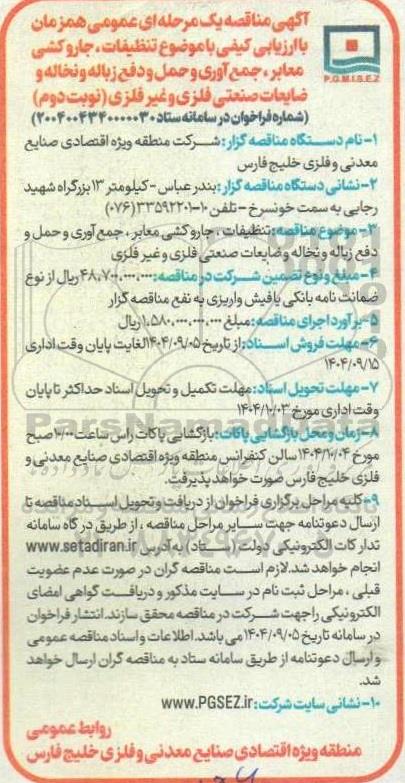 آگهی مناقصه یک مرحله ای عمومی همزمان
با ارزیابی کیفی با موضوع تنظیفات، جاروکشی
معابر، جمع آوری و حمل و دفع زباله و نخاله و
ضایعات صنعتی فلزی و غیر فلزی (نوبت دوم)
(شماره فراخوان در سامانه ستاد ۲۰۰۴۰۰۴۳۴۰۰۰۰۰۳۰)
P.G.M.I.S.E.Z
۱- نام دستگاه مناقصه گزار: شرکت منطقه ویژه اقتصادی صنایع
معدنی و فلزی خلیج فارس
۲- نشانی دستگاه مناقصه گزار: بندر عباس - کیلومتر ۱۳ بزرگراه شهید
رجایی به سمت خونسرخ - تلفن ۱۰-۳۳۵۹۲۲۰۱ (۰۷۶)
۳- موضوع مناقصه: تنظیفات، جاروکشی معابر، جمع آوری و حمل و
دفع زباله و نخاله و ضایعات صنعتی فلزی و غیر فلزی
۴- مبلغ و نوع تضمین شرکت در مناقصه: ۴۸,۷۰۰,۰۰۰,۰۰۰ ریال از نوع
ضمانت نامه بانکی یا فیش واریزی به نفع مناقصه گزار
۵- برآورد اجرای مناقصه: مبلغ ۱,۵۸۰,۰۰۰,۰۰۰,۰۰۰ ریال
۶- مهلت فروش اسناد: از تاریخ ۱۴۰۴/۰۹/۰۵ لغایت پایان وقت اداری
۱۴۰۴/۰۹/۱۵
۷- مهلت تحویل اسناد: مهلت تکمیل و تحویل اسناد حداکثر تا پایان
وقت اداری مورخ ۱۴۰۴/۱۰/۰۳
۸- زمان و محل بازگشایی پاکات: بازگشایی پاکات راس ساعت ۱۰:۰۰ صبح
مورخ ۱۴۰۴/۱۰/۰۴ سالن کنفرانس منطقه ویژه اقتصادی صنایع معدنی و
فلزی خلیج فارس صورت خواهد پذیرفت.
۹- کلیه مراحل برگزاری فراخوان از دریافت و تحویل اسناد مناقصه تا
ارسال دعوتنامه جهت سایر مراحل مناقصه، از طریق درگاه سامانه
تدارکات الکترونیکی دولت (ستاد) به آدرس www.setadiran.ir
انجام خواهد شد. لازم است مناقصه گران در صورت عدم عضویت
قبلی، مراحل ثبت نام در سایت مذکور و دریافت گواهی امضای
الکترونیکی را جهت شرکت در مناقصه محقق سازند. انتشار فراخوان
در سامانه تاریخ ۱۴۰۴/۰۹/۰۵ می باشد. اطلاعات و اسناد مناقصه عمومی
و ارسال دعوتنامه از طریق سامانه ستاد به مناقصه گران ارسال خواهد
شد.
۱۰- نشانی سایت شرکت: www.PGSEZ.ir
روابط عمومی
منطقه ویژه اقتصادی صنایع معدنی و فلزی خلیج فارس
ParsNamadData